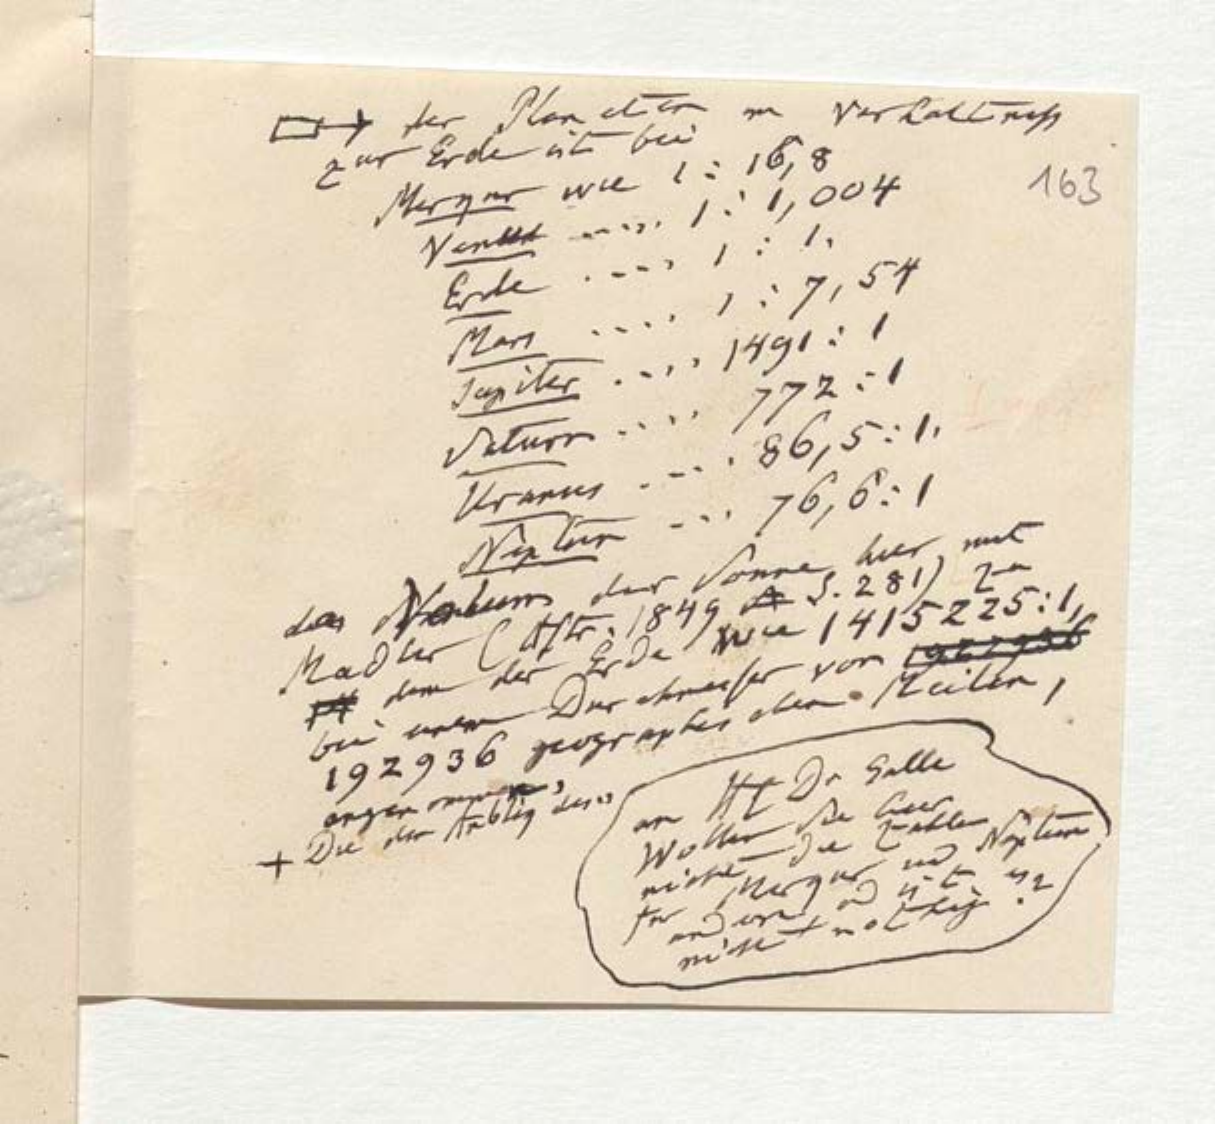 der Planeten im Verhältniss
zur Erde ist bei
163
Merqur wie 1 : 16,8
Venus ..... 1 : 1,004
Erde ..... 1 : 1.
Mars ..... 1 : 7,54
Jupiter ..... 1491 : 1
Saturn ..... 772 : 1
Uranus .... 86,5 : 1.
Neptun .... 76,6 : 1
das Volum der Sonne hier mit
Mädler (Astr. 1849 S. 281) zu
dem der Erde wie 1415225 : 1,
bei einem Durchmesser von 1922936
192936 geographischen Meilen,
angenommen,
+ Die den Anblig des
an H Dr Galle
Wollen Sie hier
nicht die Zahlen
für Merqur und Neptun
ändern od ist es
nicht nöthig?